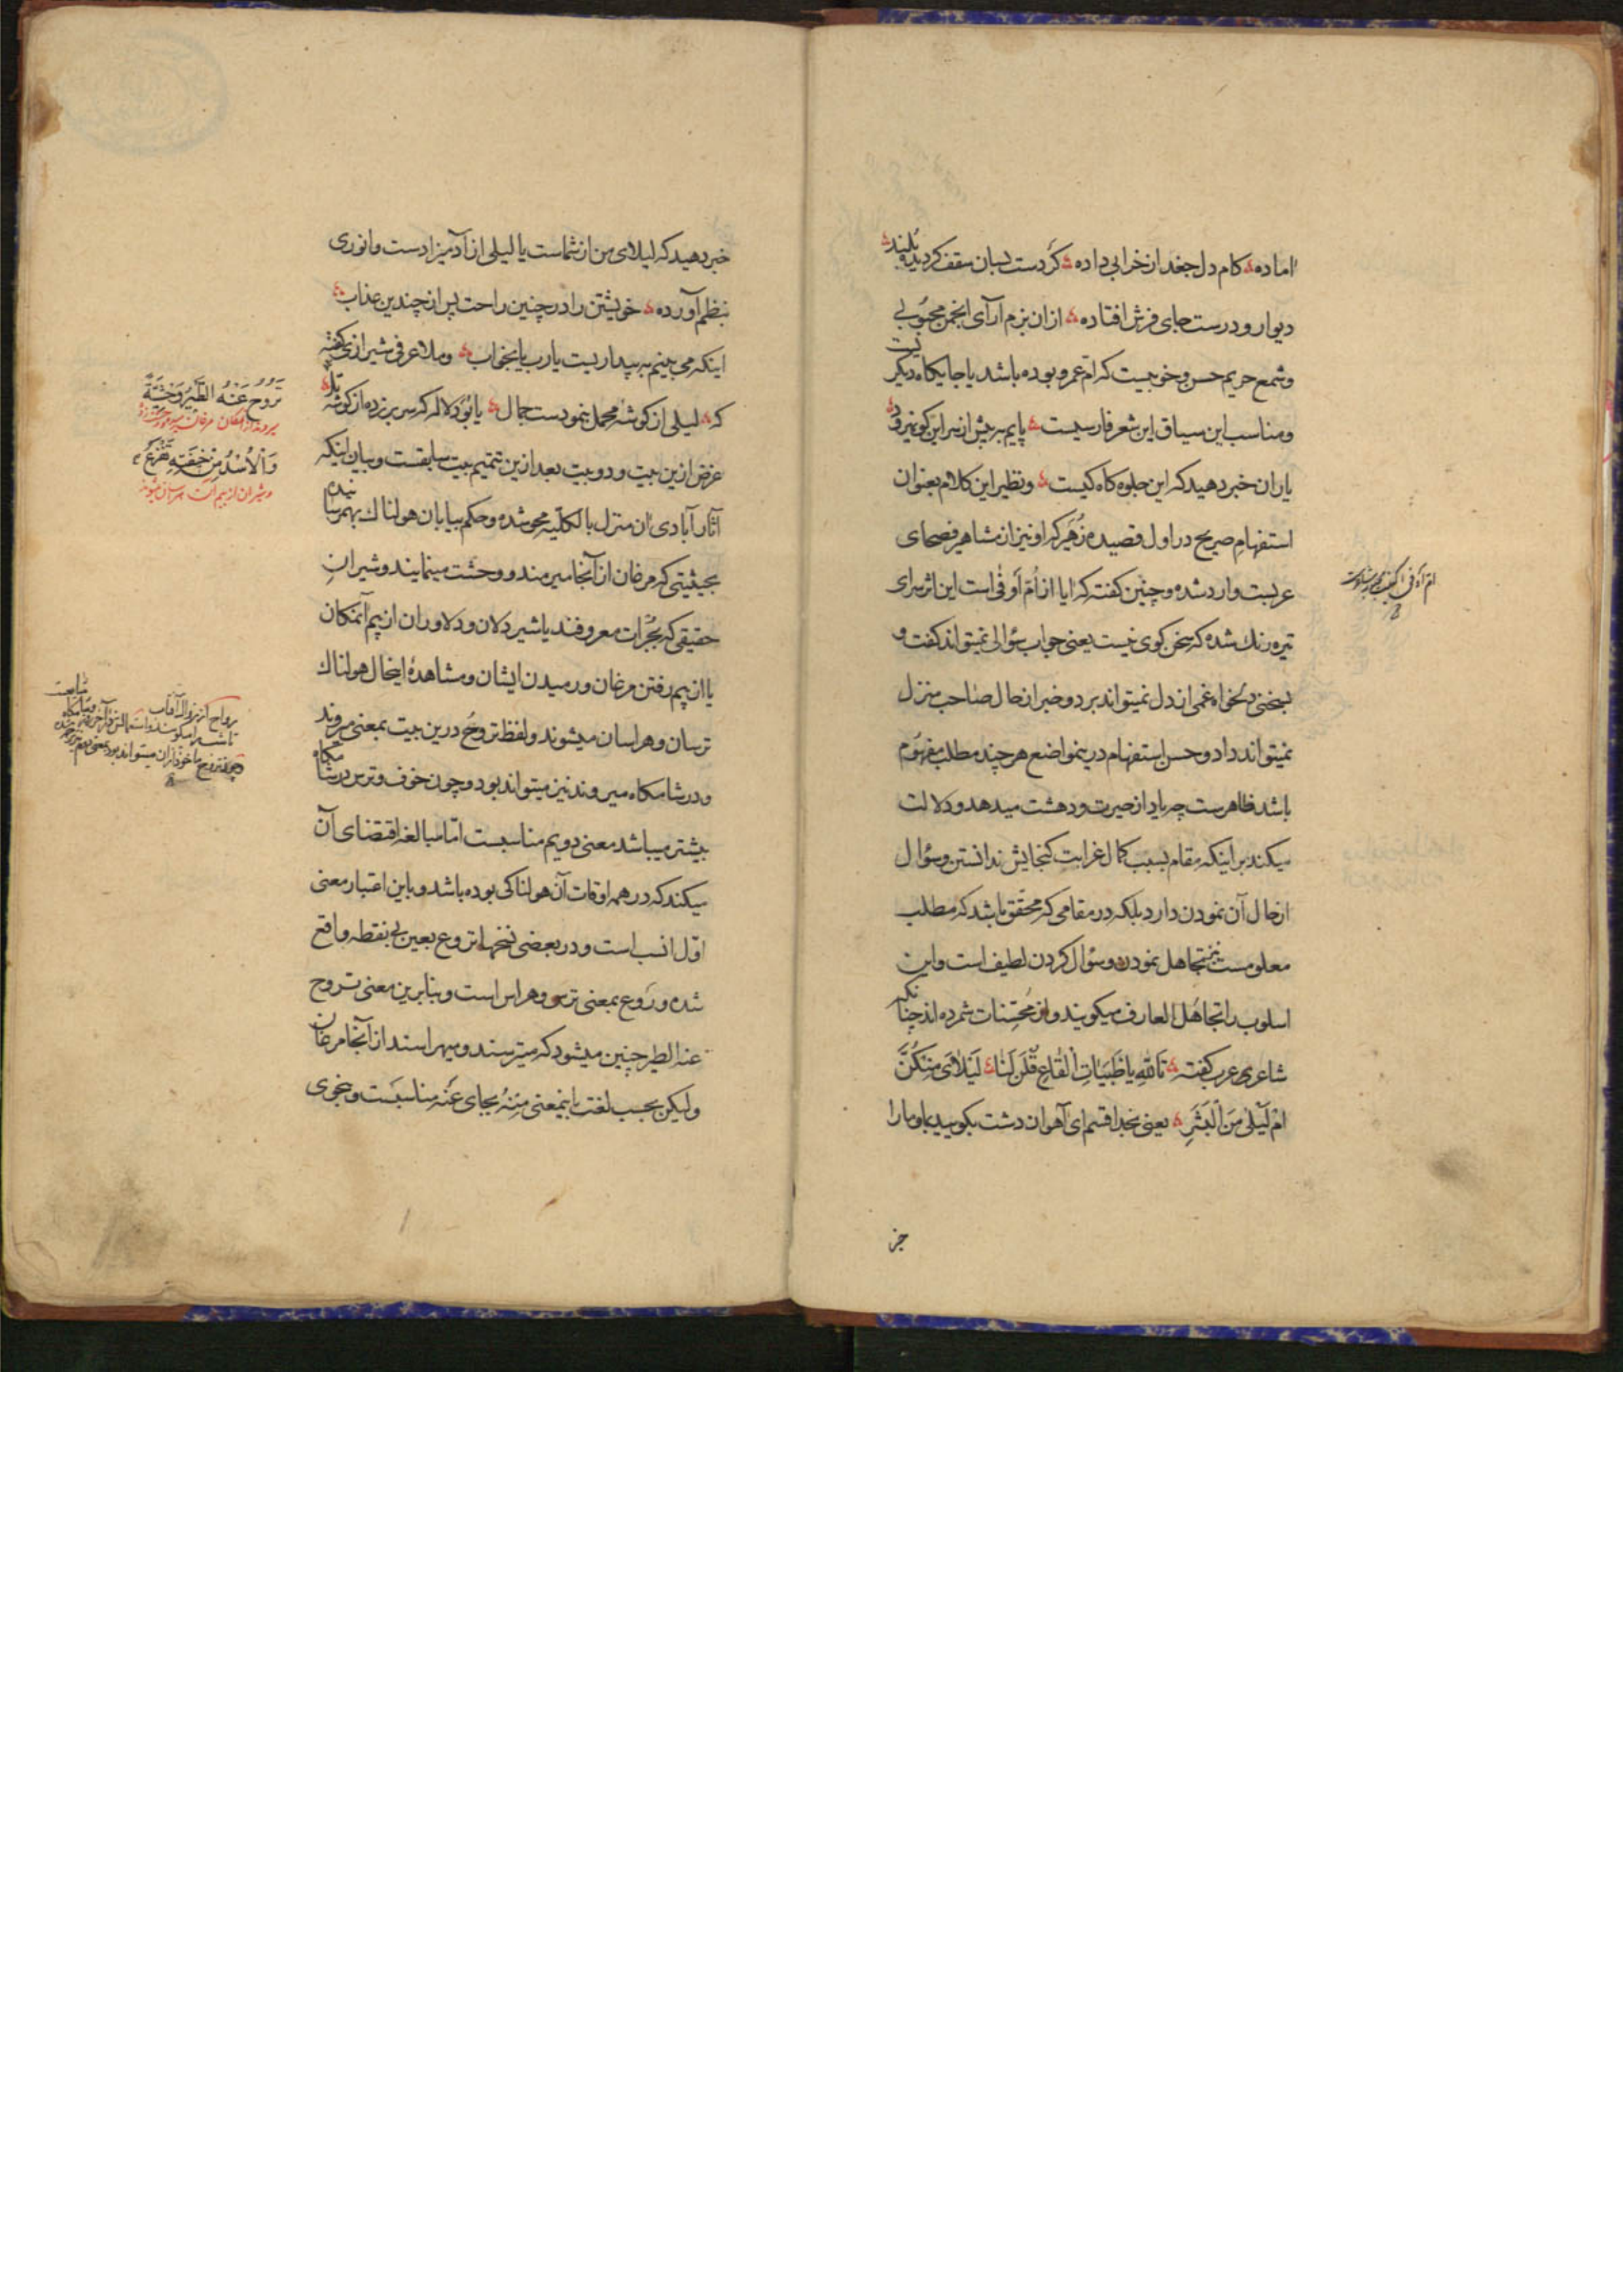 اماده کام دل جغد از خرابی داده کردست بسان سقف کردیده بلند
دیوار و درست جای فرش افتاده از ان بزم آرای انجمن محبوبی
وشمع حریم حسن وخوبیست که ام عمرو بوده باشد یا جایکاه دیکریست
ومناسب این سیاق این شعر فارسیست پایم به پیش از سر این کو نمیرود
یاران خبر دهید که این جلوه کاه کیست ونظیر این کلام بعنوان
استفهام صریح در اول قصیده زُهَیر که او نیز از مشاهیر فصحای
عربست وارد شده وچنین کفته که ایا از اُمّ اَوفٰی است این اثر سرای
تیره رنك شده که سخن کوی نیست یعنی جواب سؤالی نمیتواند کفت و
بسخنی دلخواه غمی از دل نمیتواند برد وخبر از حال صاحب منزل
نمیتواند داد وحسن استفهام درینمواضع هر چند مطلب مفهوم
باشد ظاهرست چه یاد از حیرت ودهشت میدهد ودلالت
میکند بر اینکه مقام بسبب کمال غرابت کنجایش ندانستن وسؤال
از حال آن نمودن دارد بلکه در مقامی که محقّق باشد که مطلب
معلومست نیز تجاهل نمودن وسؤال کردن لطیف است واین
اسلوب را تجاهُل العارف میکویند واز مُحسّنات شمرده اند چنانکه
شاعری عرب کفته تَاللّهِ یا ظَبَیَاتِ الْقَاعِ قُلْنَ لَنا لَیْلایَ مِنْکُنَّ
اَمْ لَیْلٰی مِنَ الْبَشَرِ یعنی بخدا قسم ای آهوان دشت بکویید با ما را
ام اوفی
خبر
خبر دهید که لیلای من از شماست یا لیلی از آدمیزادست وانوری
بنظم آورده خویشتن را در چنین راحت پس از چندین عذاب
اینکه می بینم به بیداریست یارب یا بخواب وملا عرفی شیرازی کفته
که لیلی از کوشهٔ محمل بنمودست جمال یا بُوَد لاله که سر بر زده از کوشهٔ تل
غرض ازین بیت ودو بیت بعد ازین تتمیم بیت سابقست وبیان اینکه
آثار آبادی ان منزل بالکلّیه محو شده وحکم بیابان هولناك بهمرسانیده
بحیثیتی که مرغان از آنجا میرمند ووحشت مینمایند وشیرانِ
حقیقی که بجُرات معروفند یا شیر دلان ودلاوران از بیم آنمکان
یا از بیم رفتن مرغان ورمیدن ایشان ومشاهدهٔ اینحال هولناك
ترسان وهراسان میشوند ولفظ تروحُ درین بیت بمعنی میروند
ودر شامکاه میروند نیز میتواند بود وچون خوف وترس در شامکاه
بیشتر میباشد معنی دویم مناسبست امّا مبالغه اقتضای آن
میکند که در همه اوقات آن هولناکی بوده باشد وباین اعتبار معنی
اوّل انسب است ودر بعضی نسخها تروع بعین بی نقطه واقع
شده ورَوع بمعنی ترس وهراس است وبنابرین معنی تروح
عنه الطیر چنین میشود که میترسند ومیهراسند از آنجا مرغان
ولیکن بحسب لغت باینمعنی مِنهُ بجای عَنْه مناسبست وبنحوی
تَرُوحُ عَنْهُ الطَّیْرُ وَحْشِیَّةً
میروند از آن مکان مرغان
وَالْاُسْدُ مِنْ خیفَتِهِ تَفْزَعُ
وشیران از بیم آن هراسان میشوند
رواح از زوال آفتاب